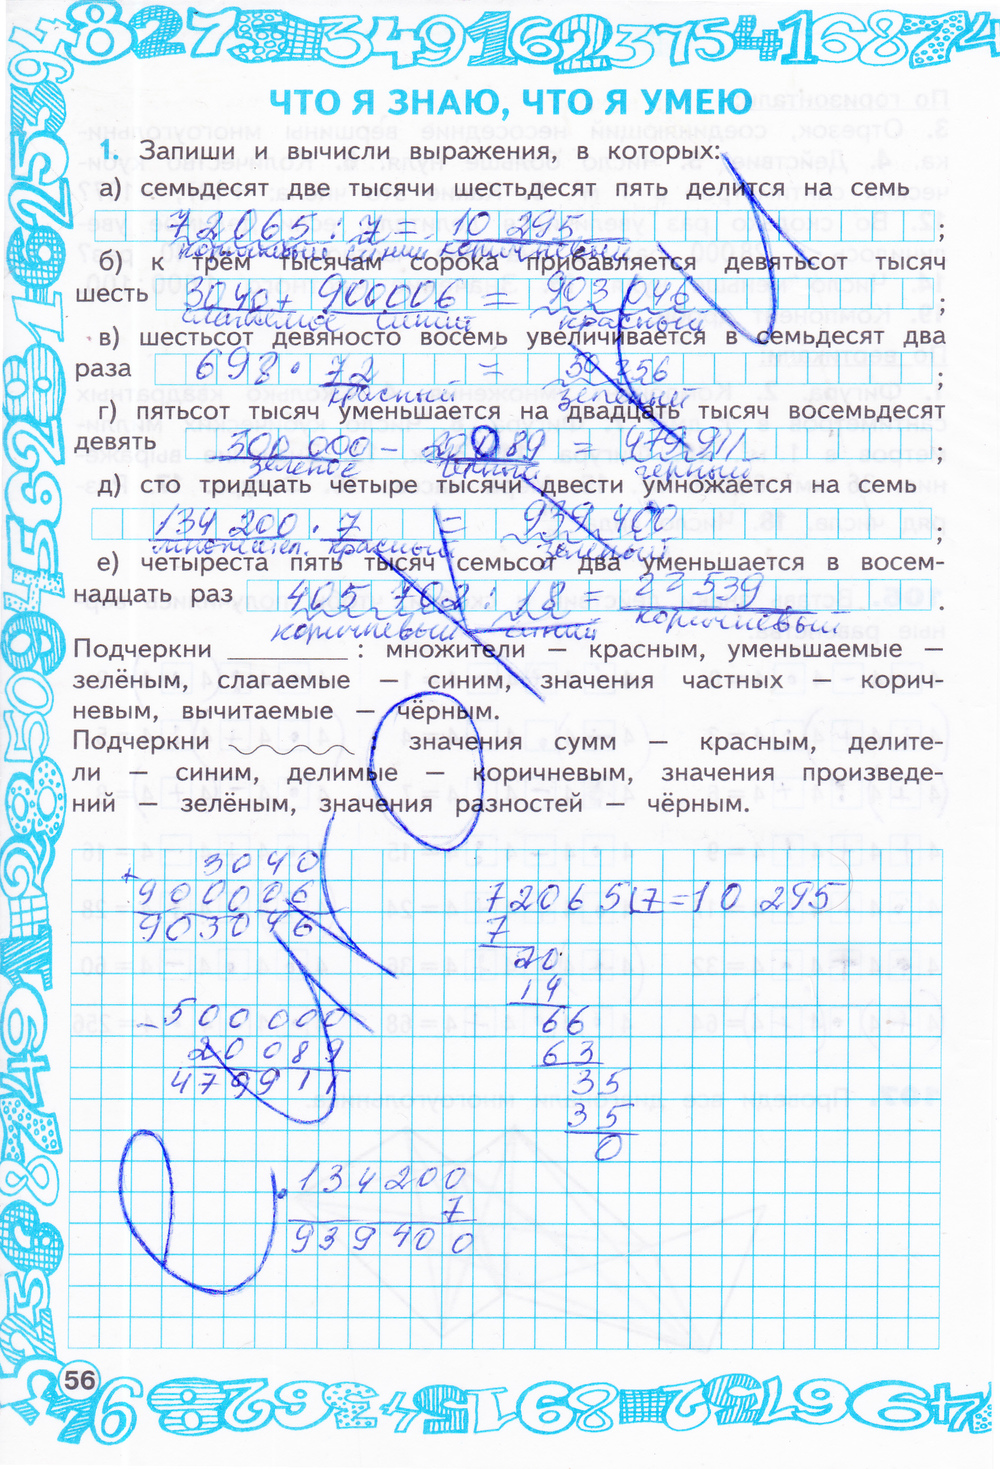 ЧТО Я ЗНАЮ, ЧТО Я УМЕЮ
1. Запиши и вычисли выражения, в которых:
а) семьдесят две тысячи шестьдесят пять делится на семь
72065 : 7 = 10 295 ;
коричневый синий коричневый
б) к трём тысячам сорока прибавляется девятьсот тысяч
шесть 3040 + 900006 = 903 046 ;
слагаемое синий красный
в) шестьсот девяносто восемь увеличивается в семьдесят два
раза 698 · 72 = 50 256 ;
красный зелёный
г) пятьсот тысяч уменьшается на двадцать тысяч восемьдесят
девять 500 000 - 20 089 = 479 911 ;
зелёное чёрный
д) сто тридцать четыре тысячи двести умножается на семь
134 200 · 7 = 939 400 ;
множител. красный зелёный
е) четыреста пять тысяч семьсот два уменьшается в восем-
надцать раз 405 702 : 18 = 22 539 .
коричневый синий коричневый
Подчеркни : множители — красным, уменьшаемые —
зелёным, слагаемые — синим, значения частных — корич-
невым, вычитаемые — чёрным.
Подчеркни : значения сумм — красным, делите-
ли — синим, делимые — коричневым, значения произведе-
ний — зелёным, значения разностей — чёрным.
3040
+ 900006
903046
72065 7 = 10 295
7
20
14
66
63
35
35
0
- 500000
20089
479911
· 134200
7
939400
56